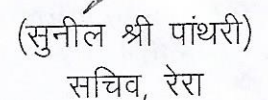 (सुनील श्री पांथरी)
सचिव, रेरा